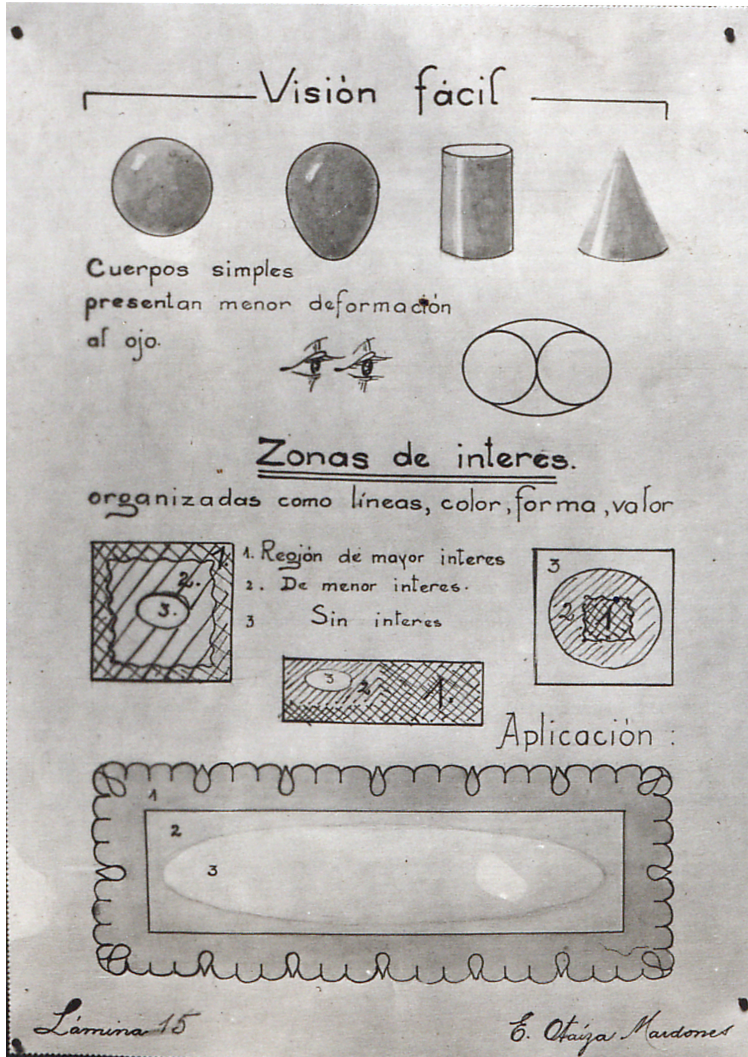 Visión fácil
Cuerpos simples
presentan menor deformación
al ojo.
Zonas de interes.
organizadas como líneas, color, forma, valor
1.
2.
3.
1. Región de mayor interes
2. De menor interes.
3 Sin interes
3
2
1
3
2
1.
Aplicación :
1
2
3
Lámina 15
E. Otaíza Mardones